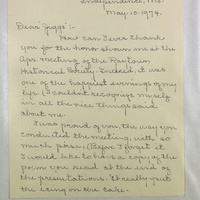 Independence, Mo.
May. 10. 1974.
Dear "Jiggs" :-
How can I ever thank
you for the honor shown me at the
Apr. meeting of the Raytown
Historical Society. Indeed, it was
one of the happiest evenings of my
life. I couldn't recognize myself
in all the nice things said
about me.
I was proud of you, the way you
conducted the meeting, with so
much poise. (Before I forget it
I would like to have a copy of the
poem you read at the end of
the presentations. It really put
the icing on the cake.